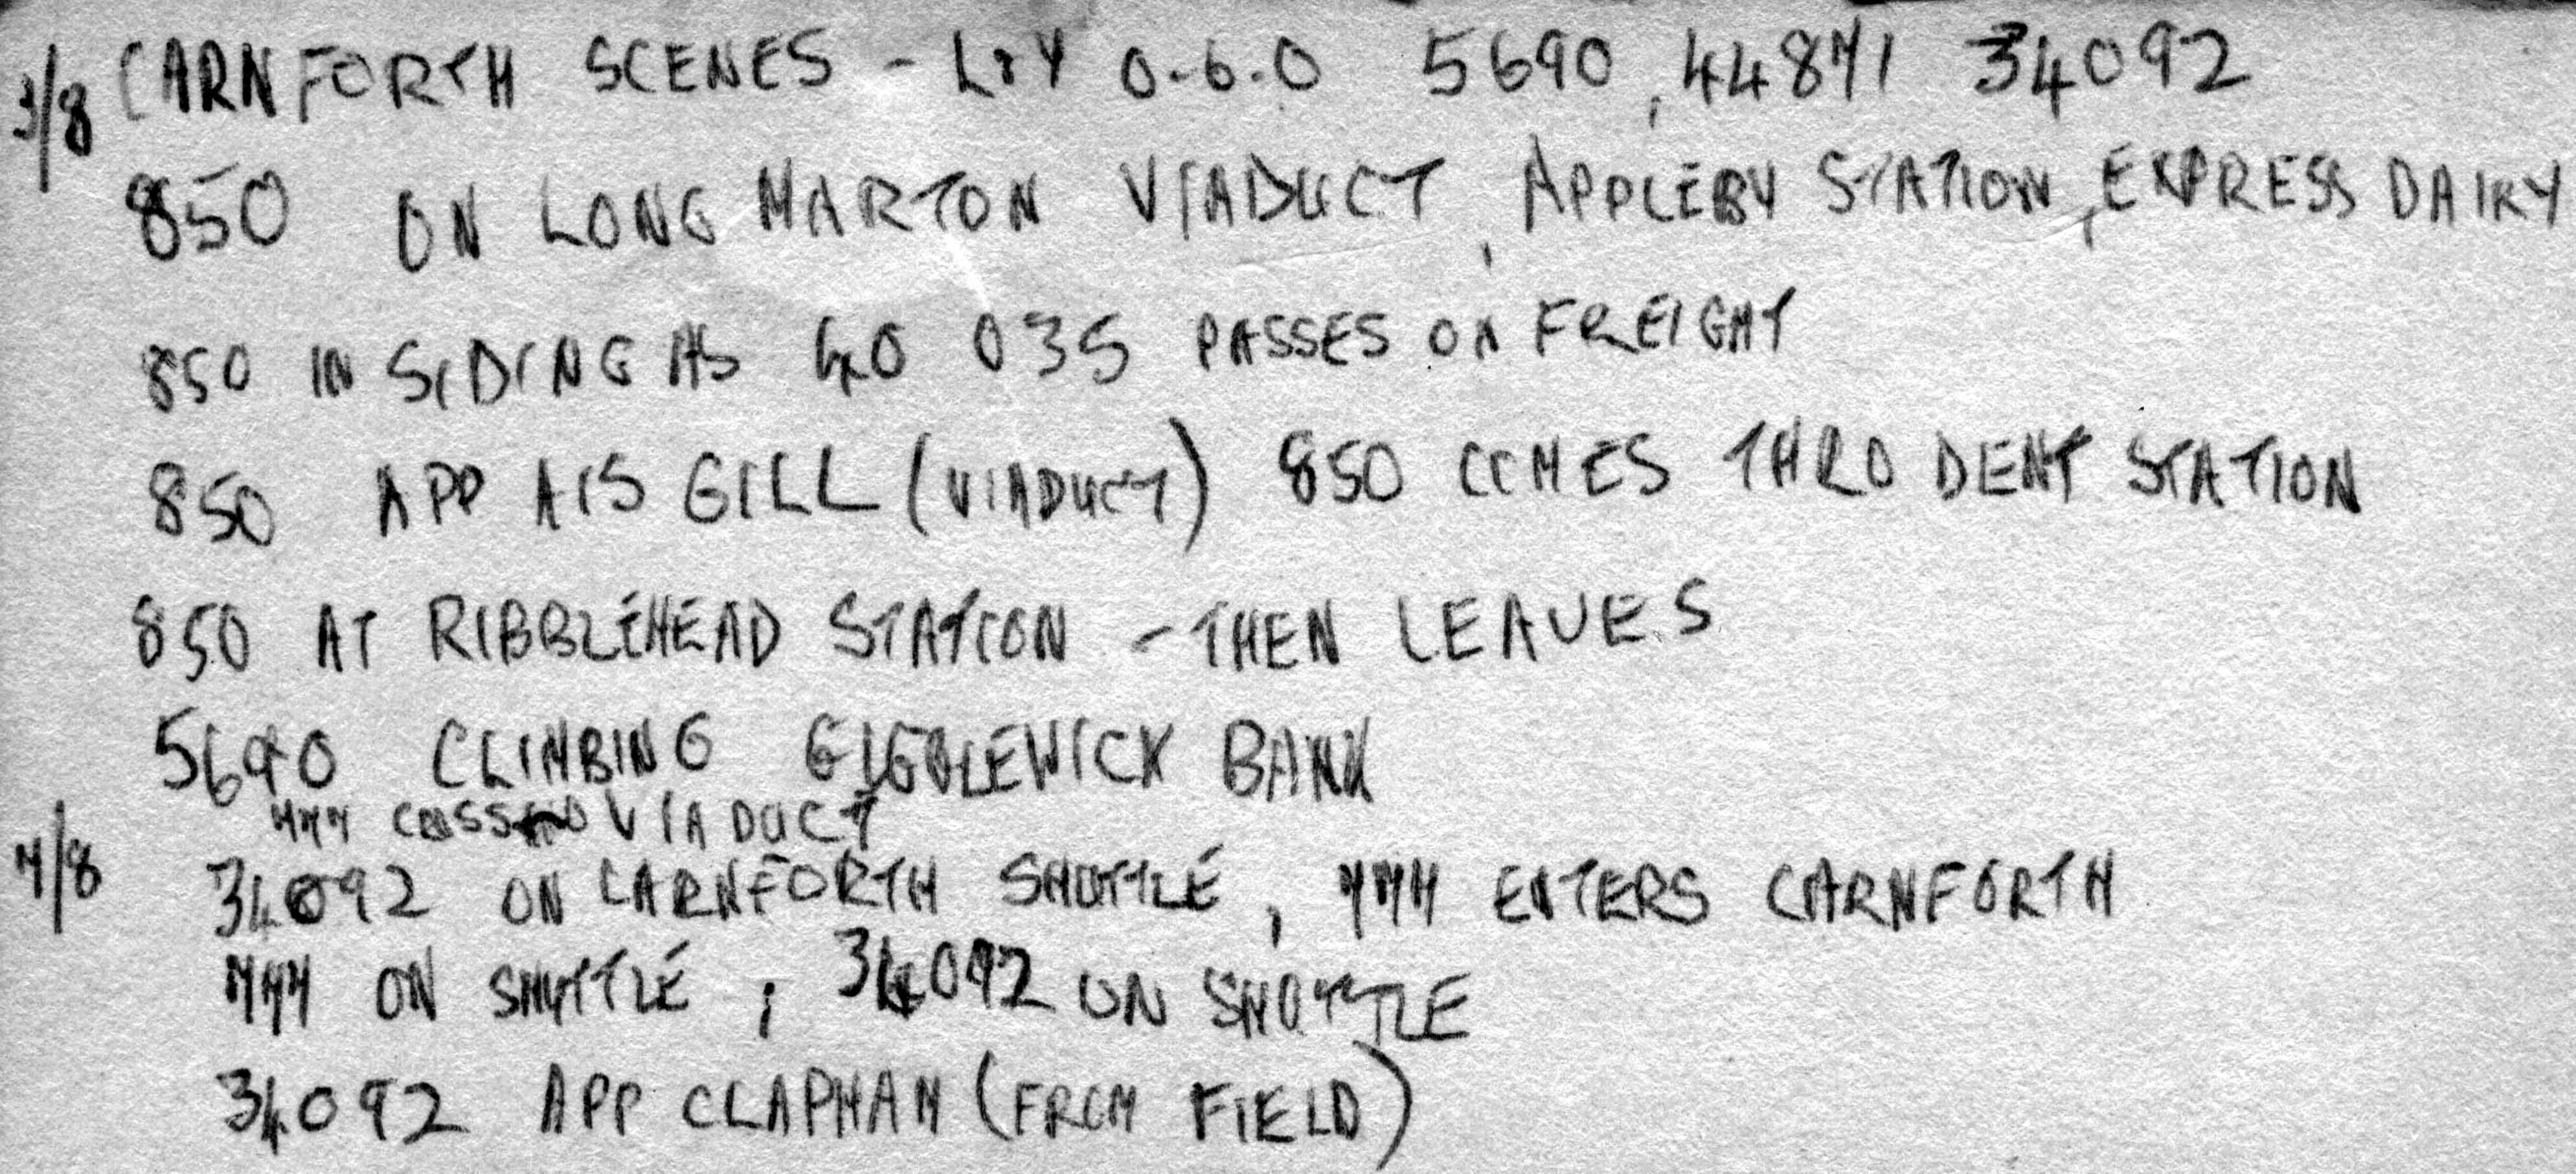 3/8 CARNFORTH SCENES - L&Y 0-6-0 5690, 44871 34092
850 ON LONG MARTON VIADUCT, APPLEBY STATION, EXPRESS DAIRY
850 IN SIDING AS 40 035 PASSES ON FREIGHT
850 APP AIS GILL (VIADUCT) 850 COMES THRO DENT STATION
850 AT RIBBLEHEAD STATION - THEN LEAVES
5690 CLIMBING GIGGLEWICK BANK
777 CROSSING VIADUCT
7/8 34092 ON CARNFORTH SHUTTLE, 777 ENTERS CARNFORTH
777 ON SHUTTLE, 34092 ON SHUTTLE
34092 APP CLAPHAM (FROM FIELD)